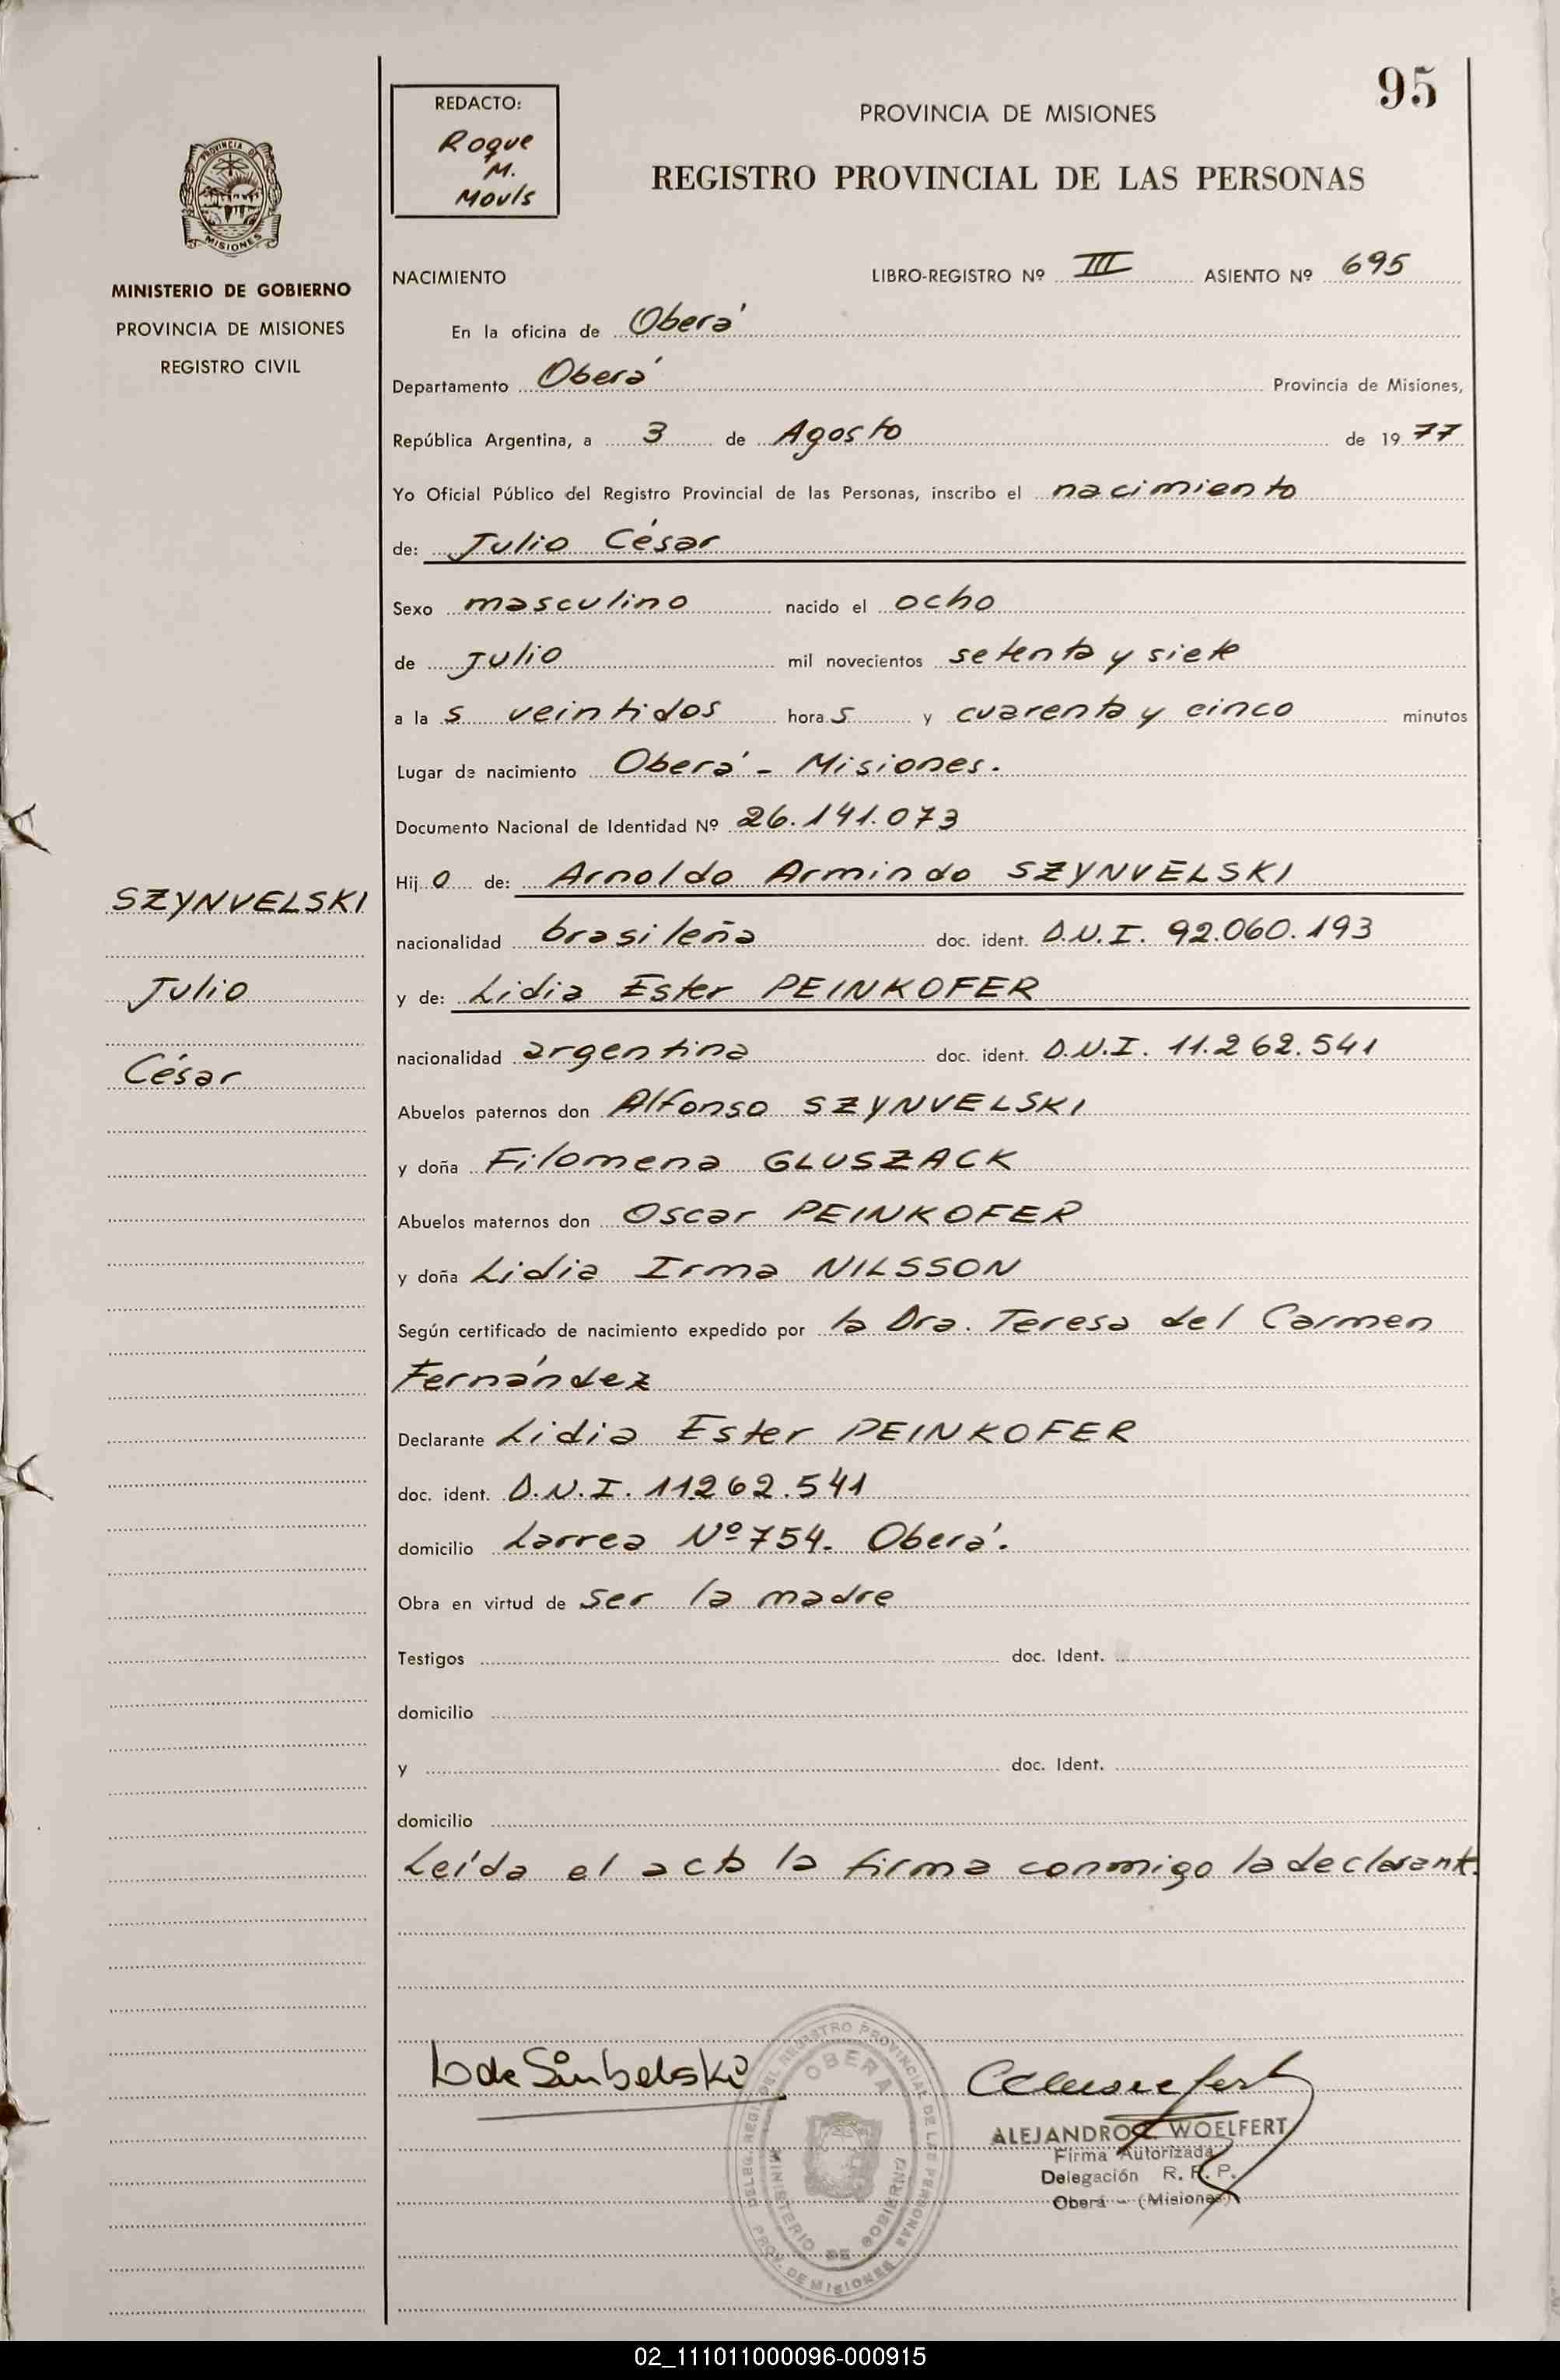 95
REDACTO:
Roque
M.
Mouls
PROVINCIA DE MISIONES
REGISTRO PROVINCIAL DE LAS PERSONAS
PROVINCIA DE
MISIONES
MINISTERIO DE GOBIERNO
PROVINCIA DE MISIONES
REGISTRO CIVIL
NACIMIENTO LIBRO-REGISTRO Nº III ASIENTO Nº 695
En la oficina de Oberá
Departamento Oberá Provincia de Misiones,
República Argentina, a 3 de Agosto de 1977
Yo Oficial Público del Registro Provincial de las Personas, inscribo el nacimiento
de: Julio César
Sexo masculino nacido el ocho
de julio mil novecientos setenta y siete
a las veintidos horas y cuarenta y cinco minutos
Lugar de nacimiento Oberá - Misiones.
Documento Nacional de Identidad Nº 26.141.073
Hijo de: Arnoldo Armindo SZYNVELSKI
nacionalidad brasileña doc. ident. D.N.I. 92.060.193
y de: Lidia Ester PEINKOFER
nacionalidad argentina doc. ident. D.N.I. 11.262.541
Abuelos paternos don Alfonso SZYNVELSKI
y doña Filomena GLUSZACK
Abuelos maternos don Oscar PEINKOFER
y doña Lidia Irma NILSSON
Según certificado de nacimiento expedido por la Dra. Teresa del Carmen
Fernández
Declarante Lidia Ester PEINKOFER
doc. ident. D.N.I. 11.262.541
domicilio Larrea Nº 754. Oberá.
Obra en virtud de ser la madre
Testigos doc. Ident.
domicilio
y doc. Ident.
domicilio
Leída el acta la firma conmigo la declarant.
SZYNVELSKI
Julio
César
L de Sinbelski
DELEG. REGL. DEL REGISTRO PROVINCIAL DE LAS PERSONAS
OBERA
MINISTERIO DE GOBIERNO
PROV. DE MISIONES
ALEJANDRO C. WOELFERT
Firma Autorizada
Delegación R. P. P.
Oberá - (Misiones)
02_111011000096-000915